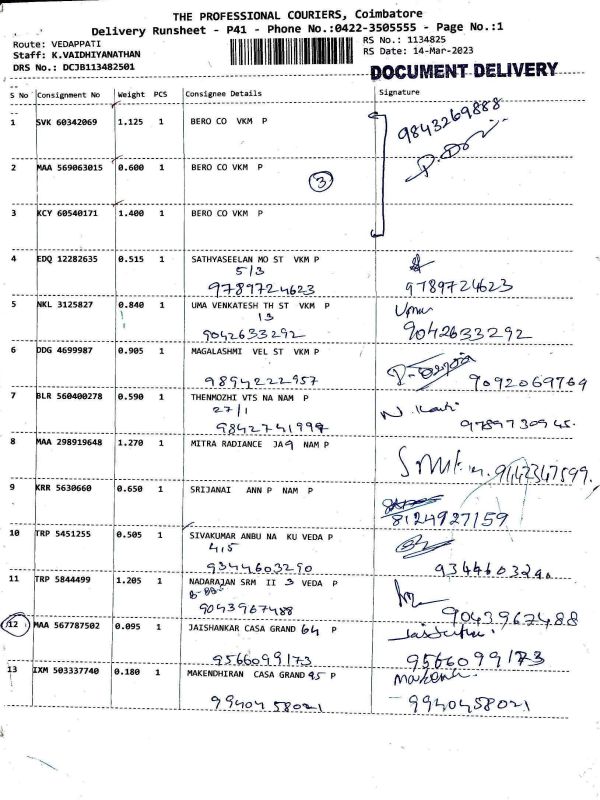 THE PROFESSIONAL COURIERS, Coimbatore
Delivery Runsheet - P41 - Phone No.:0422-3505555 - Page No.:1
Route: VEDAPPATI
RS No.: 1134825
Staff: K.VAIDHIYANATHAN
RS Date: 14-Mar-2023
DRS No.: DCJB113482501
DOCUMENT DELIVERY
S No Consignment No Weight PCS Consignee Details Signature
1 SVK 60342069 1.125 1 BERO CO VKM P
9843269888
2 MAA 569063015 0.600 1 BERO CO VKM P
3
3 KCY 60540171 1.400 1 BERO CO VKM P
4 EDQ 12282635 0.515 1 SATHYASEELAN MO ST VKM P
5/3
9789724623 9789724623
5 NKL 3125827 0.840 1 UMA VENKATESH TH ST VKM P
13
9042633292 9042633292
6 DDG 4699987 0.905 1 MAGALASHMI VEL ST VKM P
9894222957 9092069769
7 BLR 560400278 0.590 1 THENMOZHI VTS NA NAM P
27/1
9842741997 9789730945.
8 MAA 298919648 1.270 1 MITRA RADIANCE JA9 NAM P
9142347599.
9 KRR 5630660 0.650 1 SRIJANAI ANN P NAM P
8124927159
10 TRP 5451255 0.505 1 SIVAKUMAR ANBU NA KU VEDA P
415
9344603290 934460329.
11 TRP 5844499 1.205 1 NADARAJAN SRM II 3 VEDA P
9043967488 9043967488
12 MAA 567787502 0.095 1 JAISHANKAR CASA GRAND 64 P
9566099173 9566099173
13 IXM 503337740 0.180 1 MAKENDHIRAN CASA GRAND 95 P
9940458021 9940458021